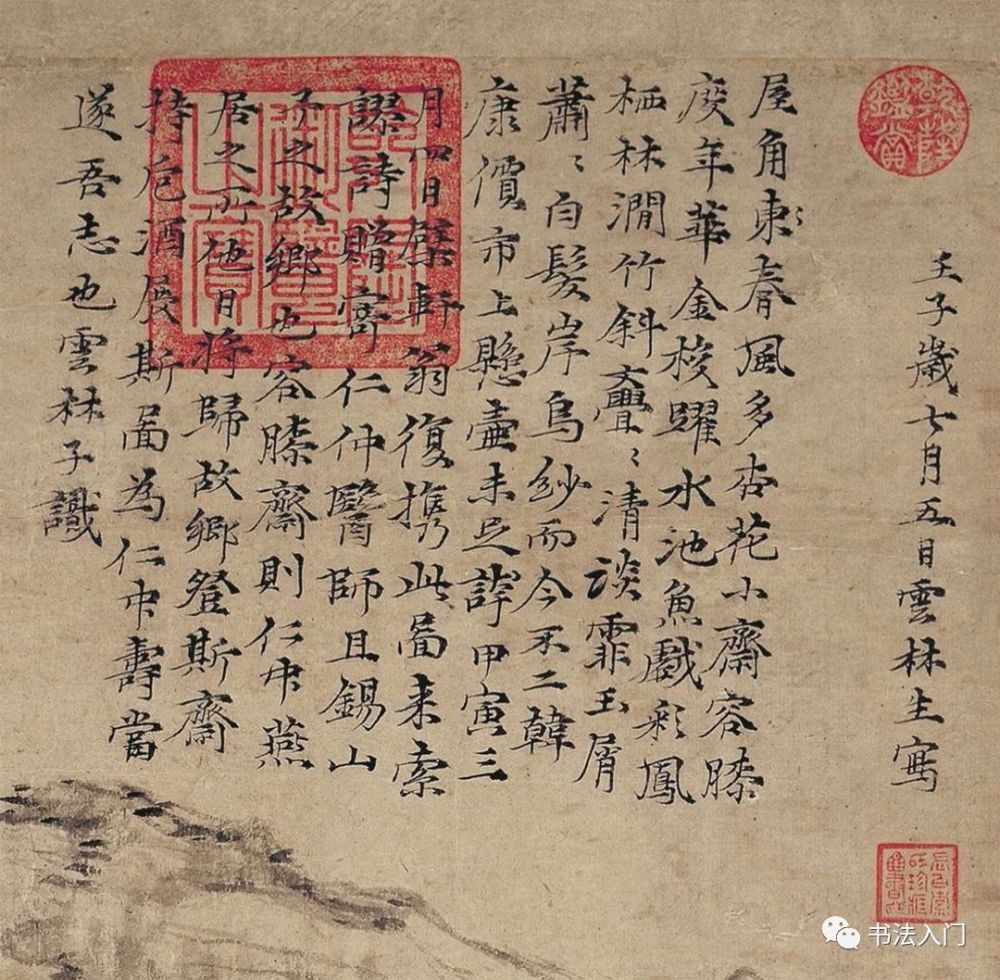 壬子歲七月五日雲林生寫
屋角東〻春風多杏花小齋容膝
度年華金梭躍水池魚戲彩鳳
栖林澗竹斜亹〻清談霏玉屑
蕭〻白髮岸烏紗而今不二韓
康價市上懸壺未足誇甲寅三
月四日檗軒翁復携此圖来索
謬詩贈寄仁仲醫師且錫山
予之故鄉也容膝齋則仁中燕
居之所他日將歸故鄉登斯齋
持卮酒展斯圖為仁中壽當
遂吾志也雲林子識
书法入门